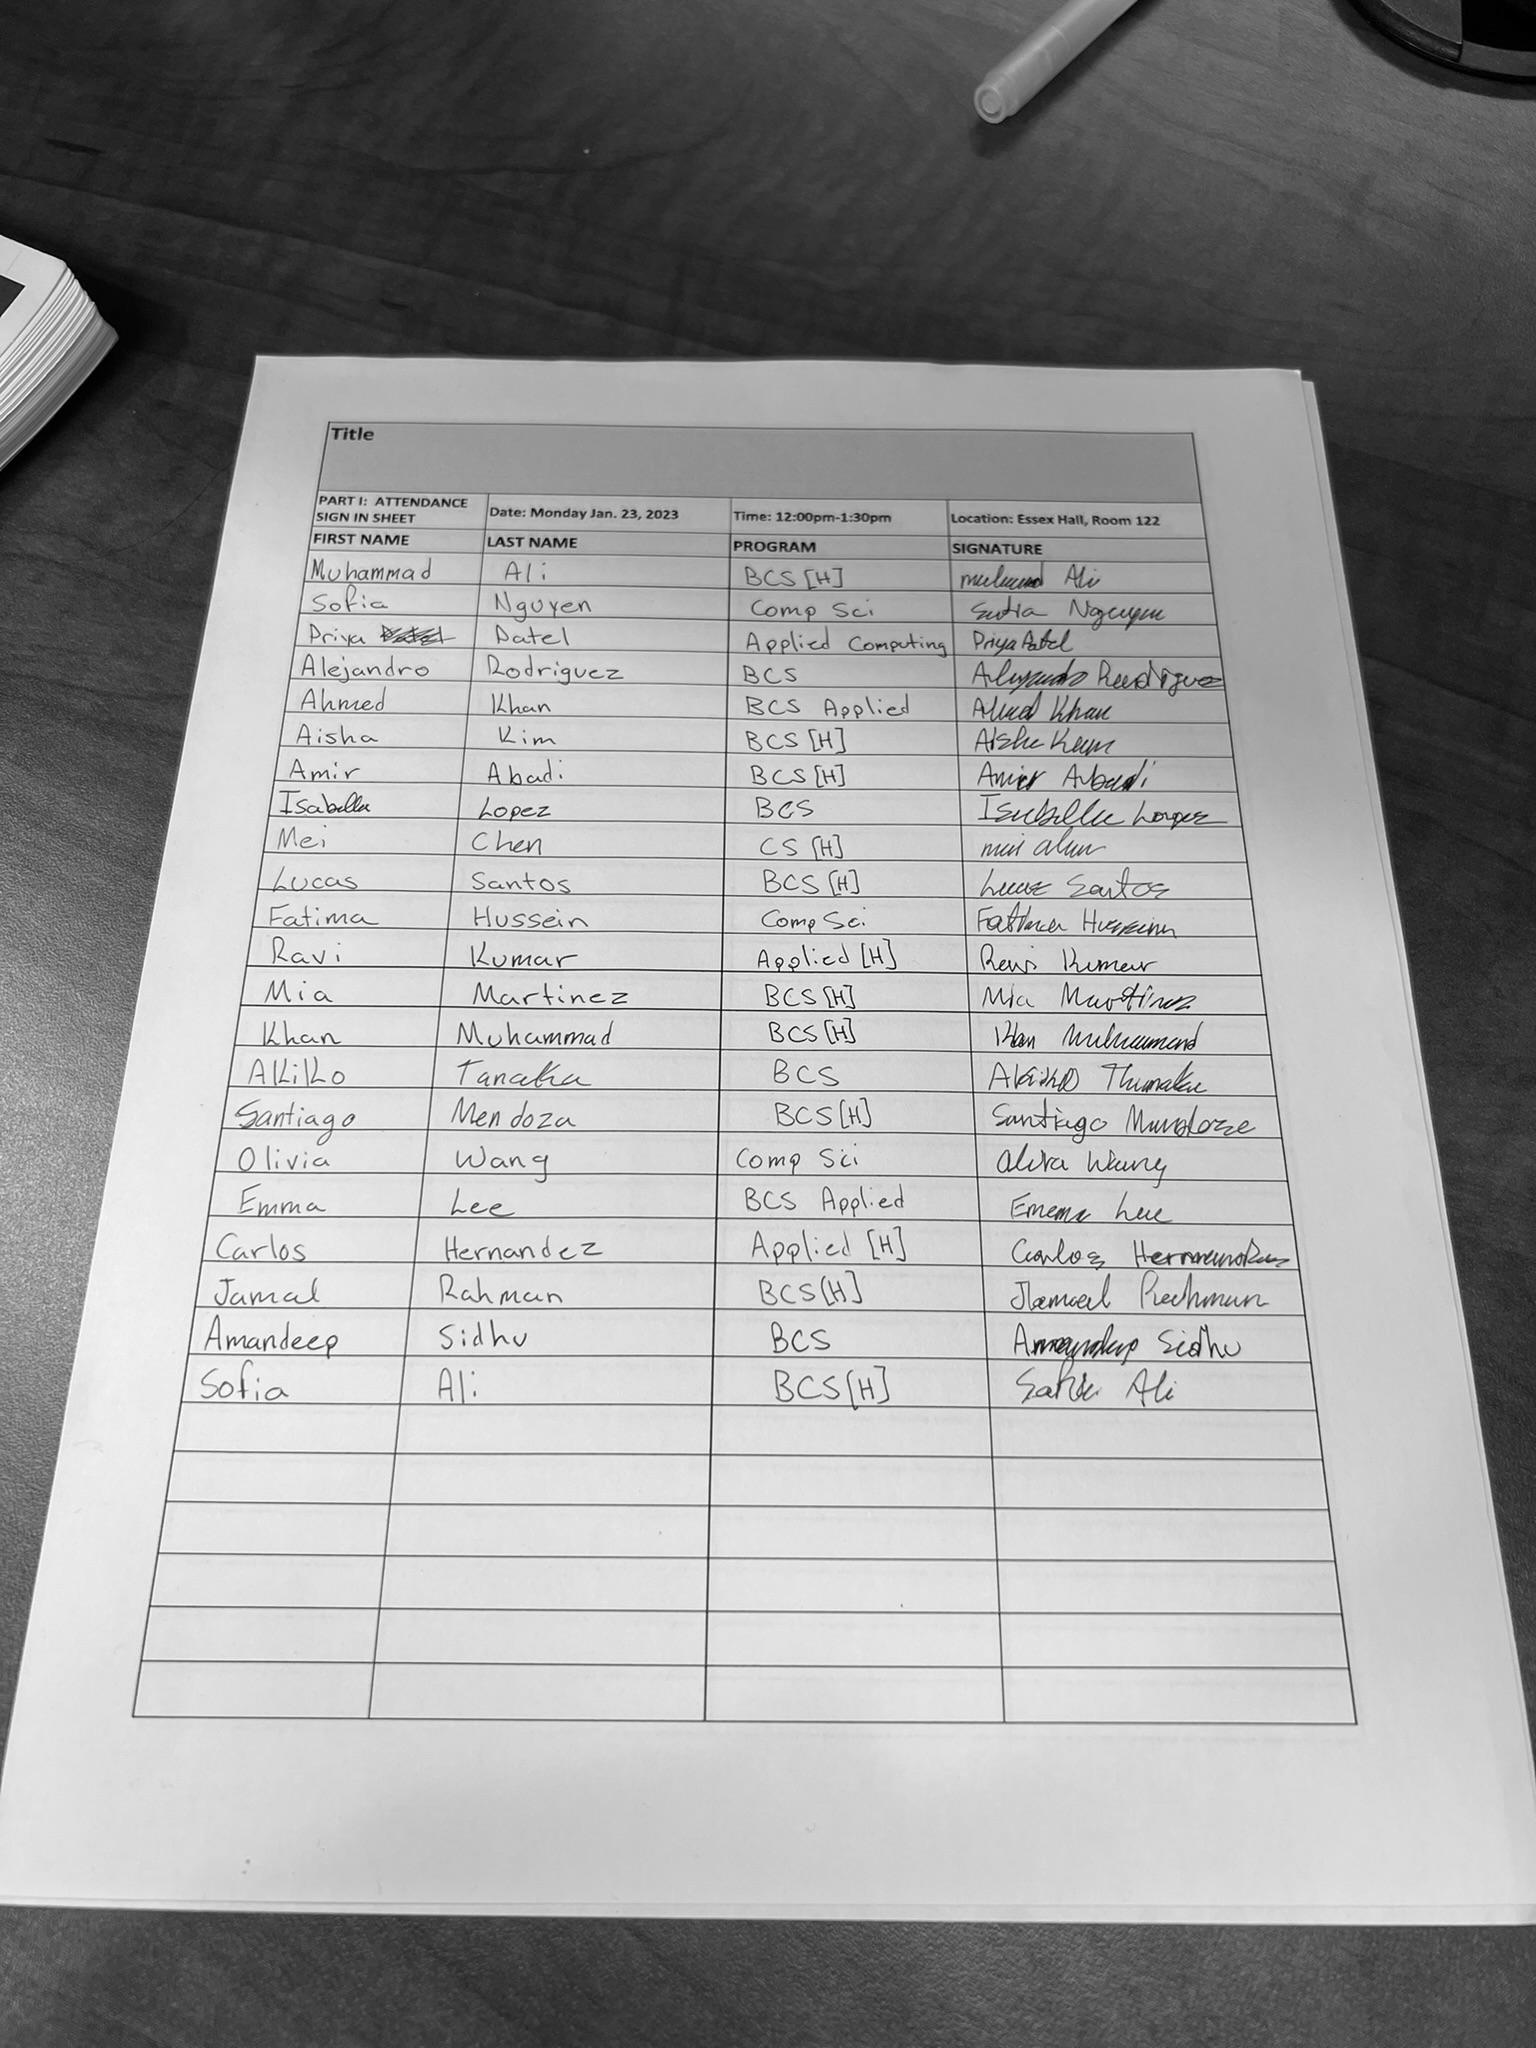 Title
PART I: ATTENDANCE SIGN IN SHEET Date: Monday Jan. 23, 2023 Time: 12:00pm-1:30pm Location: Essex Hall, Room 122
FIRST NAME LAST NAME PROGRAM SIGNATURE
Muhammad Ali BCS [H] Ali
Sofia Nguyen Comp Sci
Priya Patel Applied Computing Priya Patel
Alejandro Rodriguez BCS
Ahmed Khan BCS Applied Khan
Aisha Kim BCS [H]
Amir Abadi BCS [H] Amir Abadi
Isabella Lopez BCS Isabella Lopez
Mei Chen CS [H]
Lucas Santos BCS [H] Lucas Santos
Fatima Hussein Comp Sci Fatima Hussein
Ravi Kumar Applied [H] Ravi Kumar
Mia Martinez BCS [H] Mia Martinez
Khan Muhammad BCS [H] Khan Muhammad
Akiko Tanaka BCS Akiko
Santiago Mendoza BCS [H] Santiago
Olivia Wang Comp Sci Wang
Emma Lee BCS Applied Lee
Carlos Hernandez Applied [H] Carlos
Jamal Rahman BCS [H]
Amandeep Sidhu BCS Amandeep Sidhu
Sofia Ali BCS [H] Ali